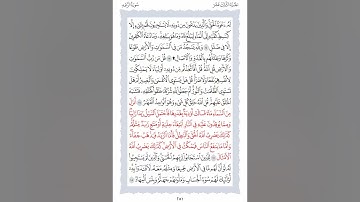 الجزء الثالث عشر
سورة الرعد
لَهُۥ دَعْوَةُ ٱلْحَقِّ وَٱلَّذِينَ يَدْعُونَ مِن دُونِهِۦ لَا يَسْتَجِيبُونَ لَهُم بِشَىْءٍ إِلَّا
كَبَٰسِطِ كَفَّيْهِ إِلَى ٱلْمَآءِ لِيَبْلُغَ فَاهُ وَمَا هُوَ بِبَٰلِغِهِۦ وَمَا دُعَآءُ ٱلْكَٰفِرِينَ
إِلَّا فِى ضَلَٰلٍ ١٤ وَلِلَّهِ يَسْجُدُ مَن فِى ٱلسَّمَٰوَٰتِ وَٱلْأَرْضِ طَوْعًا
وَكَرْهًا وَظِلَٰلُهُم بِٱلْغُدُوِّ وَٱلْءَاصَالِ ۩ ١٥ قُلْ مَن رَّبُّ ٱلسَّمَٰوَٰتِ
وَٱلْأَرْضِ قُلِ ٱللَّهُ قُلْ أَفَٱتَّخَذْتُم مِّن دُونِهِۦٓ أَوْلِيَآءَ لَا يَمْلِكُونَ
لِأَنفُسِهِمْ نَفْعًا وَلَا ضَرًّا قُلْ هَلْ يَسْتَوِى ٱلْأَعْمَىٰ وَٱلْبَصِيرُ أَمْ هَلْ
تَسْتَوِى ٱلظُّلُمَٰتُ وَٱلنُّورُ أَمْ جَعَلُوا۟ لِلَّهِ شُرَكَآءَ خَلَقُوا۟ كَخَلْقِهِۦ فَتَشَٰبَهَ
ٱلْخَلْقُ عَلَيْهِمْ قُلِ ٱللَّهُ خَٰلِقُ كُلِّ شَىْءٍ وَهُوَ ٱلْوَٰحِدُ ٱلْقَهَّٰرُ ١٦ أَنزَلَ
مِنَ ٱلسَّمَآءِ مَآءً فَسَالَتْ أَوْدِيَةٌۢ بِقَدَرِهَا فَٱحْتَمَلَ ٱلسَّيْلُ زَبَدًا رَّابِيًا
وَمِمَّا يُوقِدُونَ عَلَيْهِ فِى ٱلنَّارِ ٱبْتِغَآءَ حِلْيَةٍ أَوْ مَتَٰعٍ زَبَدٌ مِّثْلُهُۥ
كَذَٰلِكَ يَضْرِبُ ٱللَّهُ ٱلْحَقَّ وَٱلْبَٰطِلَ فَأَمَّا ٱلزَّبَدُ فَيَذْهَبُ جُفَآءً
وَأَمَّا مَا يَنفَعُ ٱلنَّاسَ فَيَمْكُثُ فِى ٱلْأَرْضِ كَذَٰلِكَ يَضْرِبُ ٱللَّهُ
ٱلْأَمْثَالَ ١٧ لِلَّذِينَ ٱسْتَجَابُوا۟ لِرَبِّهِمُ ٱلْحُسْنَىٰ وَٱلَّذِينَ لَمْ يَسْتَجِيبُوا۟
لَهُۥ لَوْ أَنَّ لَهُم مَّا فِى ٱلْأَرْضِ جَمِيعًا وَمِثْلَهُۥ مَعَهُۥ لَٱفْتَدَوْا۟ بِهِۦٓ
أُو۟لَٰٓئِكَ لَهُمْ سُوٓءُ ٱلْحِسَابِ وَمَأْوَىٰهُمْ جَهَنَّمُ وَبِئْسَ ٱلْمِهَادُ ١٨
٢٥١